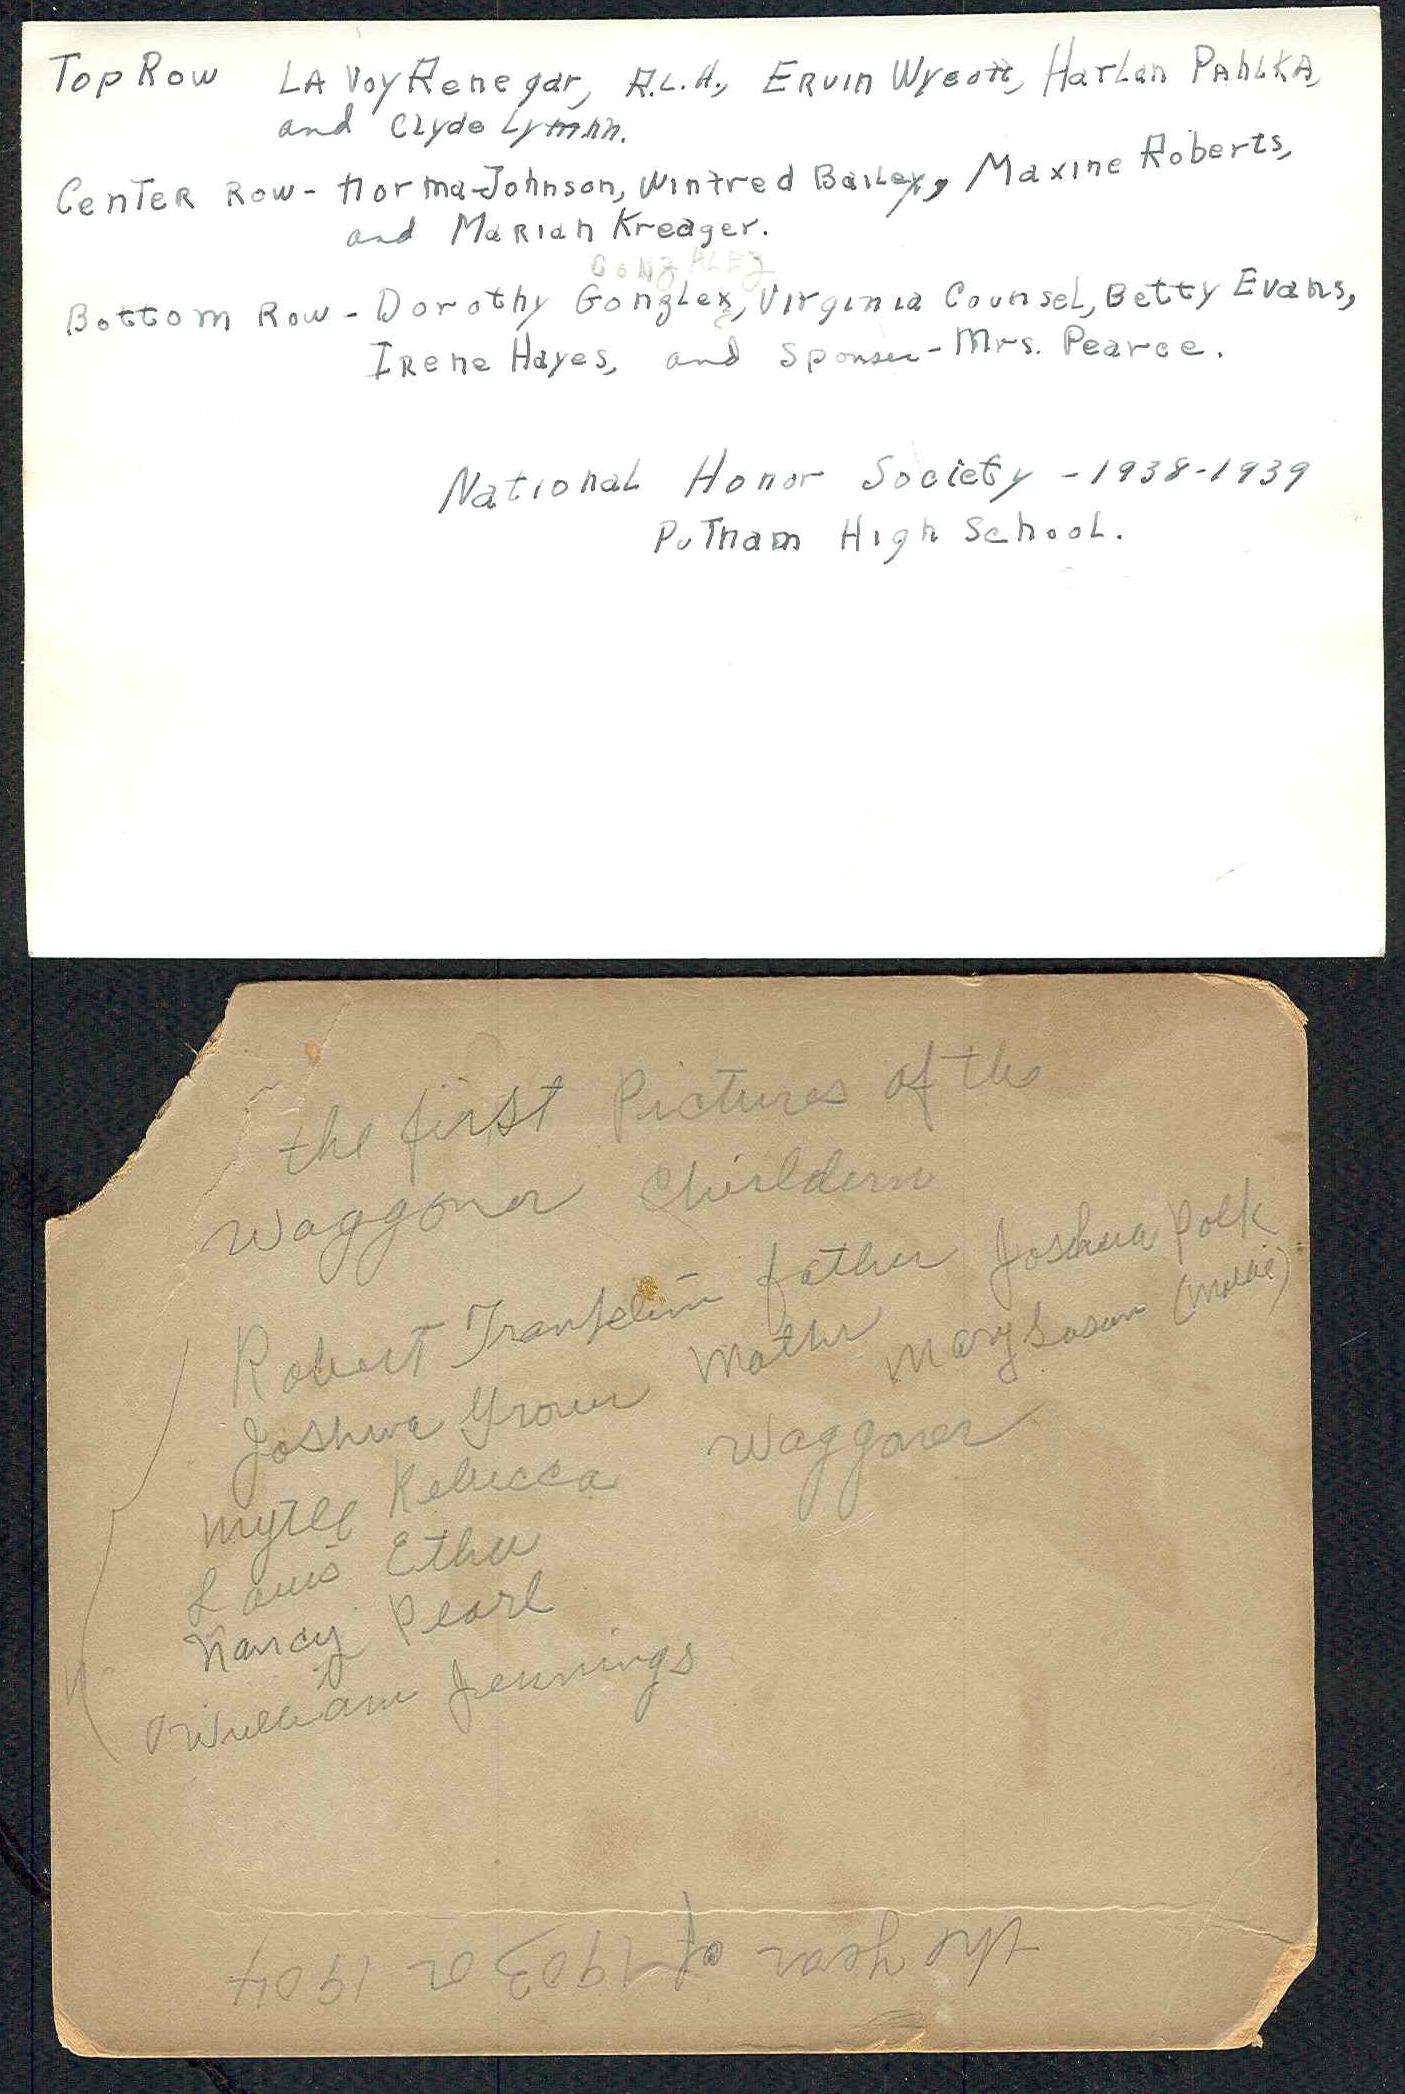 Top Row LA Voy Renegar, R.L.H., Ervin Wycott, Harlan Pahlka,
and Clyde Lymhn.
Center Row - Norma Johnson, Winfred Bailey, Maxine Roberts,
and Marian Kreager.
GONZALEZ
Bottom Row - Dorothy Gonzlex, Virginia Counsel, Betty Evans,
Irene Hayes, and Sponser - Mrs. Pearce.
National Honor Society - 1938-1939
Putnam High School.
the first Pictures of the
Waggoner Chirldern
Robert Franklin father Joshua Polk
Joshua Grover Mother Mary Susan (Mollie)
Myrtle Rebecca Waggoner
Louis Ether
Nancy Pearl
William Jennings
the year of 1903 or 1904